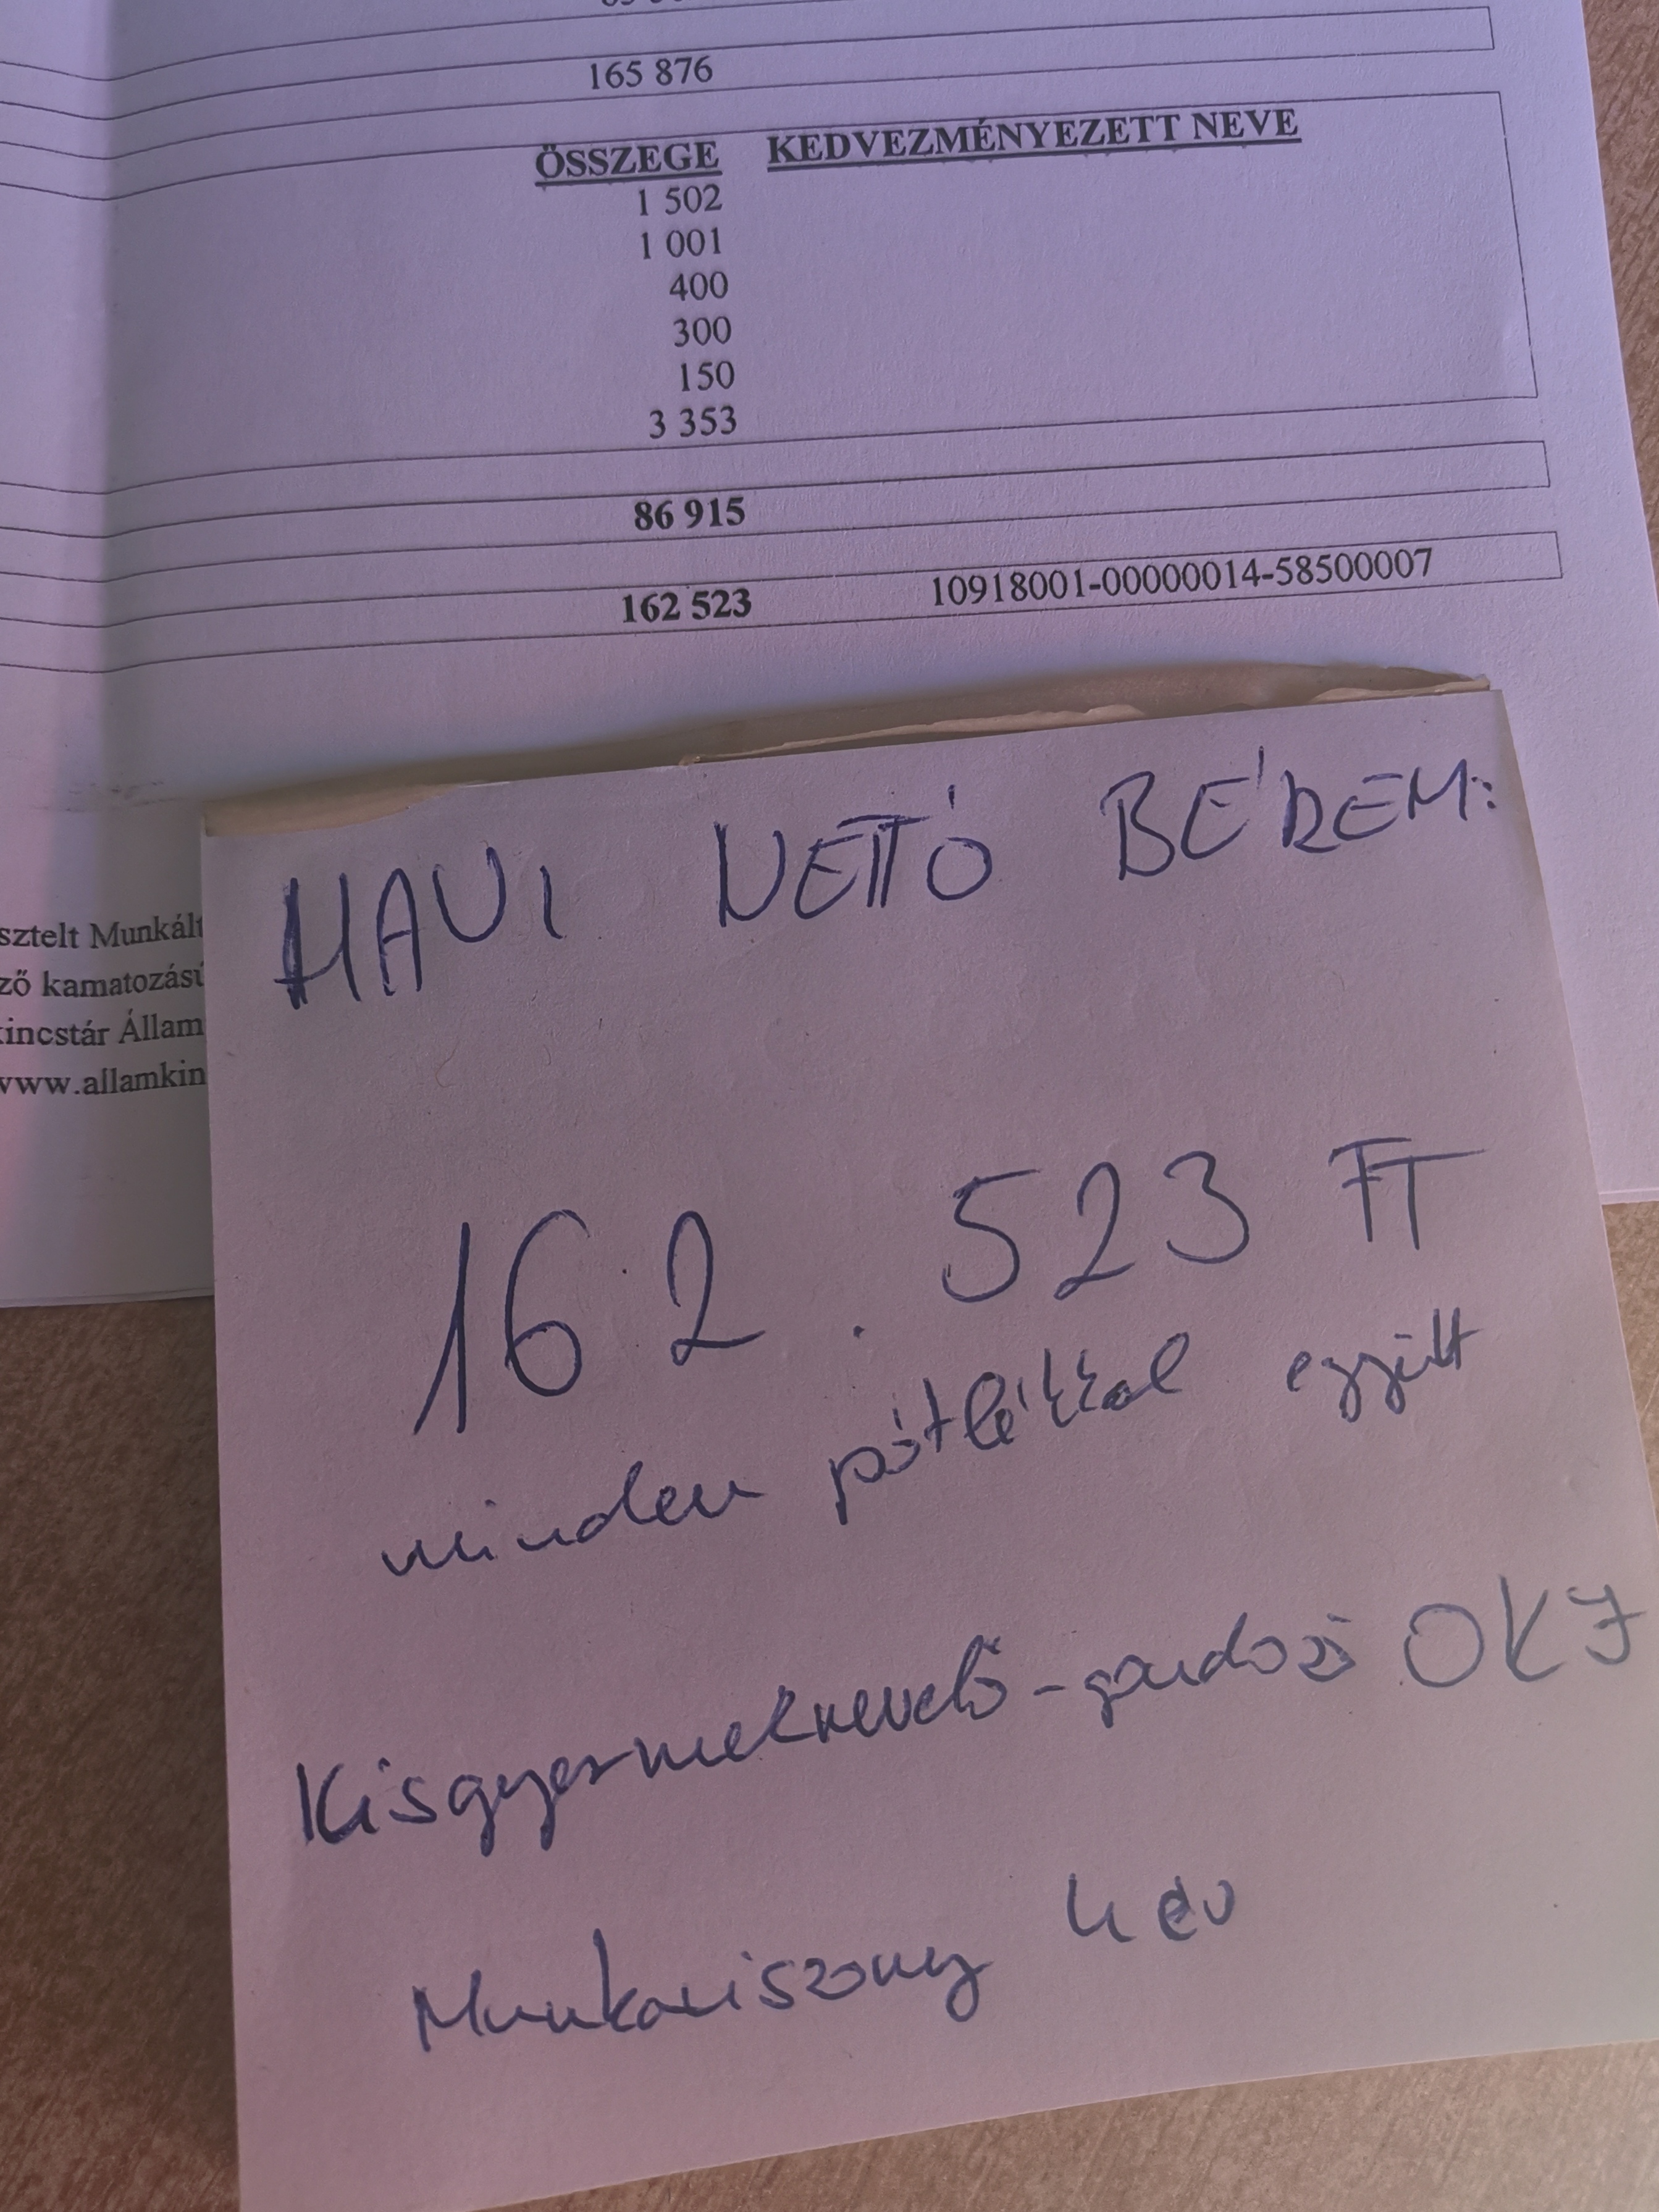 165 876
ÖSSZEGE KEDVEZMÉNYEZETT NEVE
1 502
1 001
400
300
150
3 353
86 915
162 523 10918001-00000014-58500007
sztelt Munkált
ző kamatozású
incstár Állam
www.allamkin
HAVI NETTÓ BÉREM:
162.523 FT
minden pótlékkal együtt
Kisgyermeknevelő-gondozó OKJ
Munkaviszony 4 év